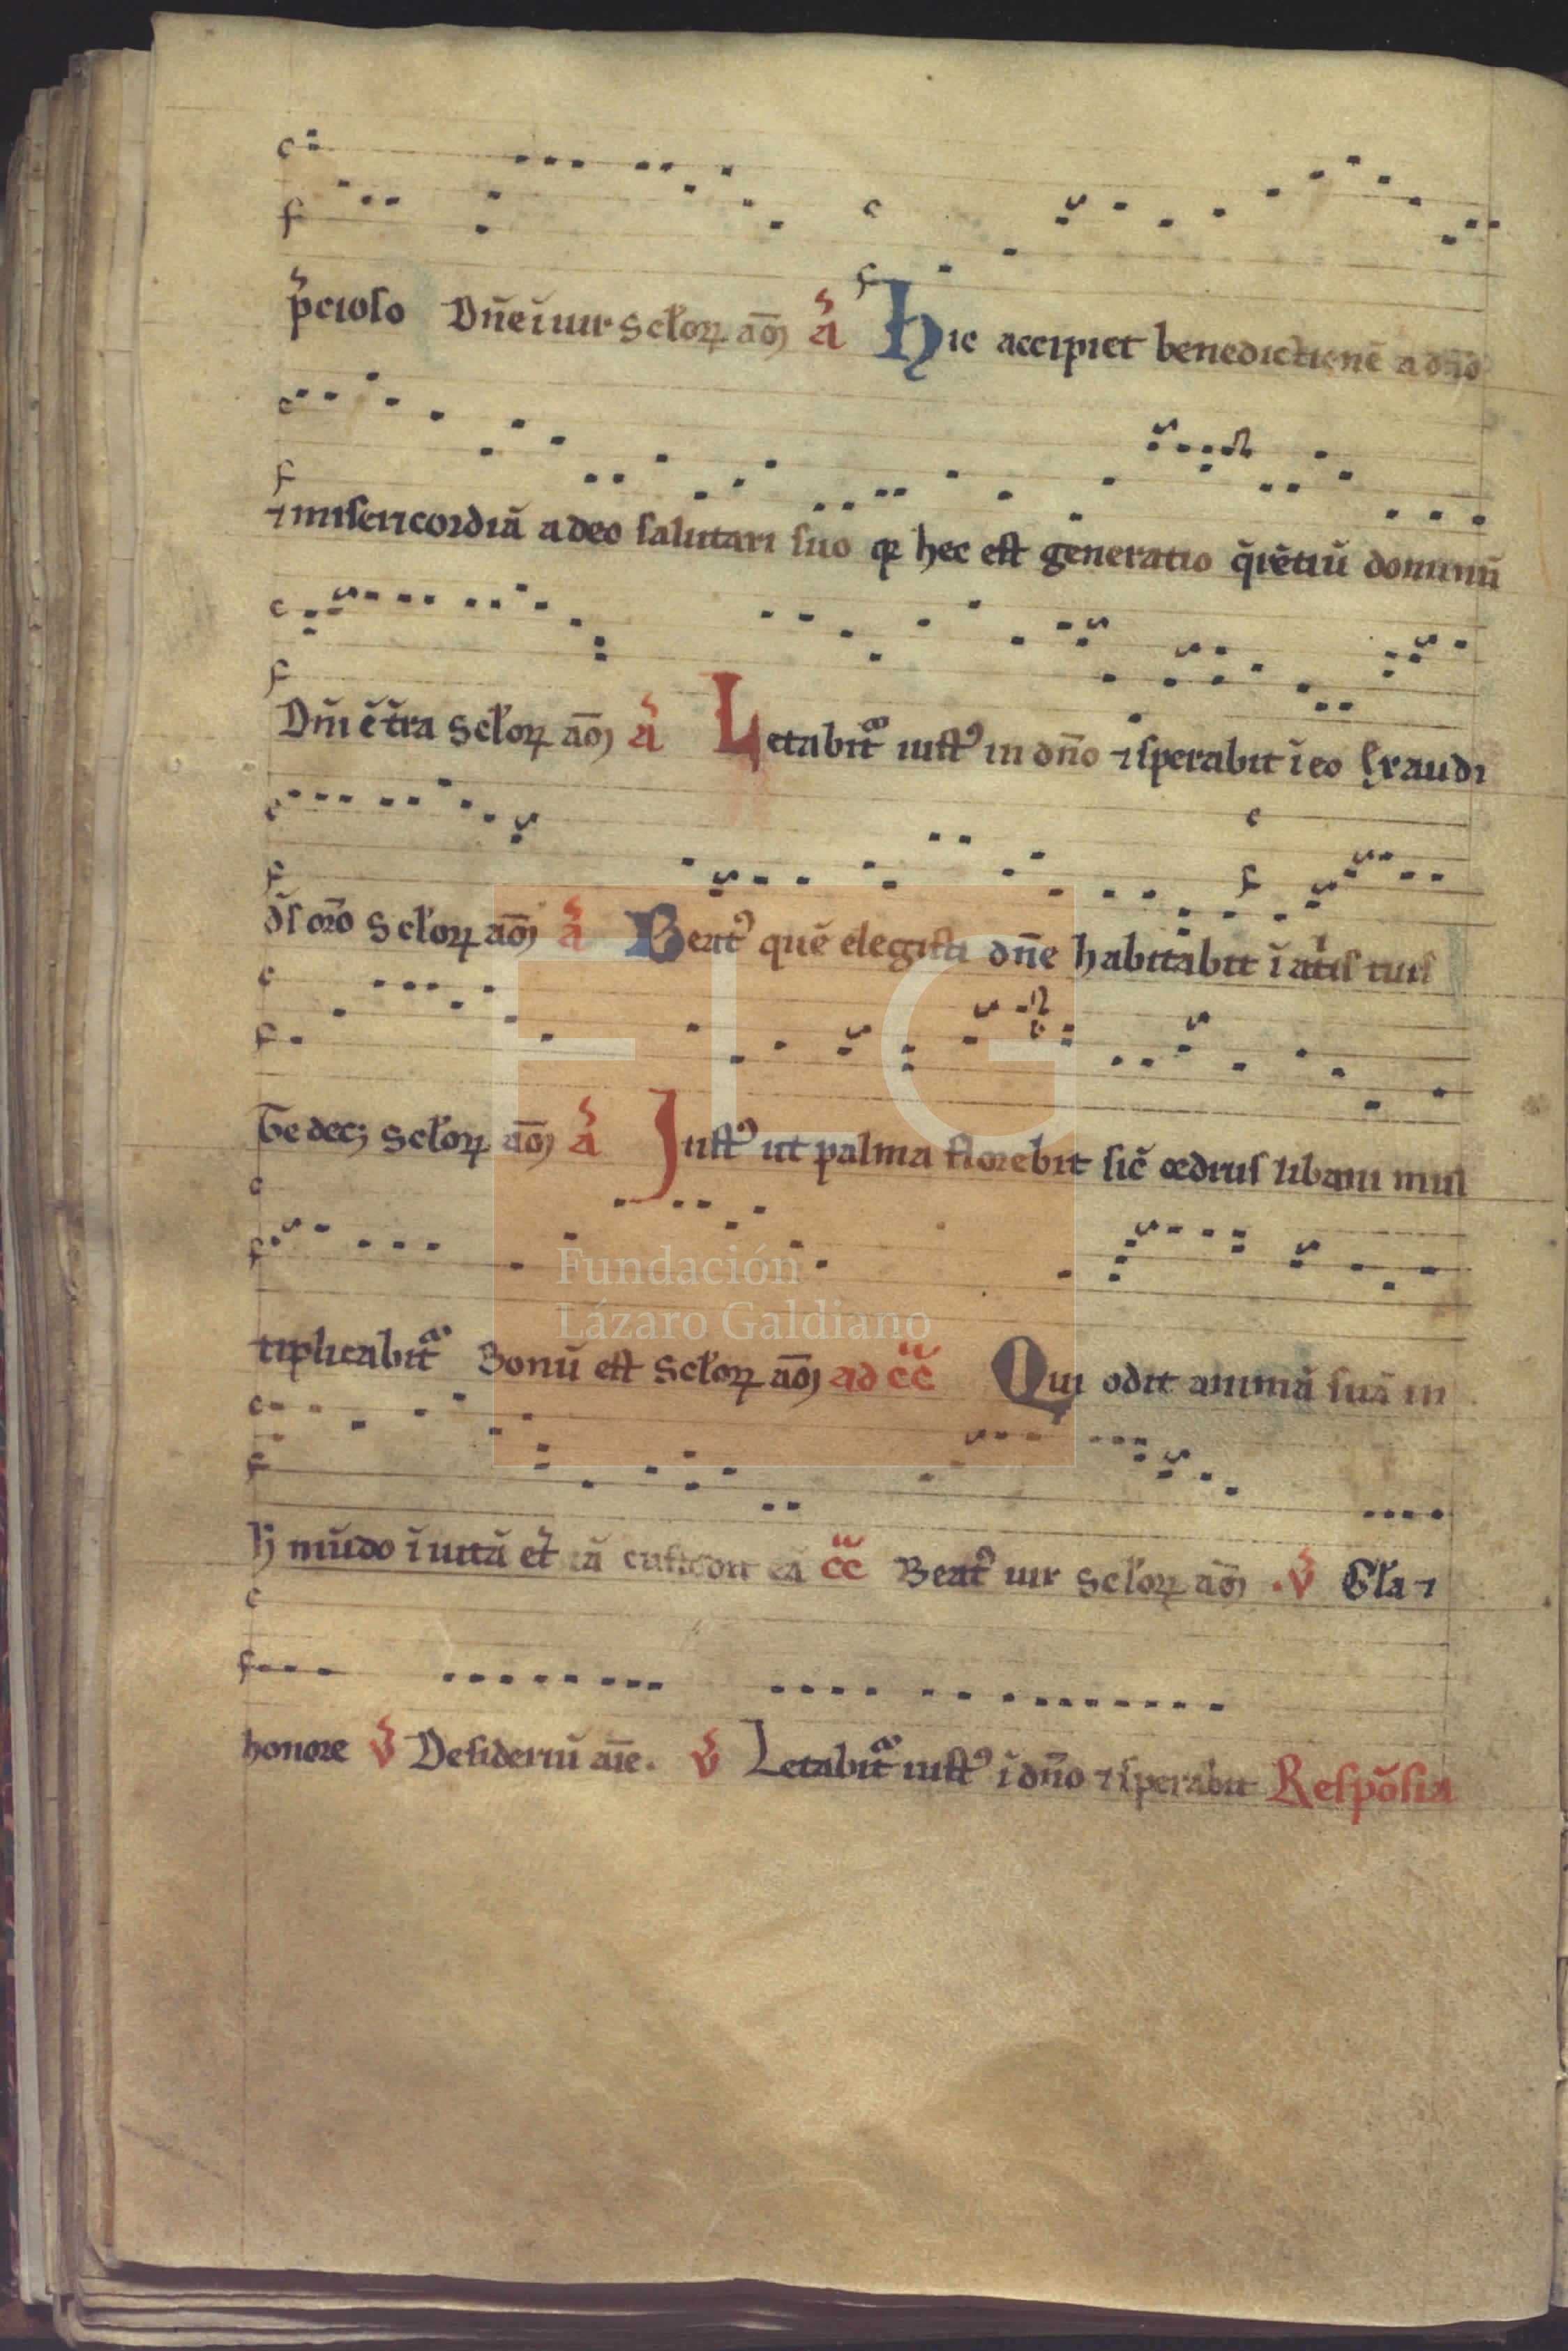 p̃cioso Dn̄e ī uir Scłoꝝ aō) ã Hic accipiet benedictionē a dn̄o
⁊ misericordiā a deo salutari suo qꝛ hec est generatio q̄rētiū dominū
Dn̄i ē t̄ra Scłoꝝ aō) ã Letabit᷑ iustꝰ in dn̄o ⁊ sperabit ī eo Exaudi
d̄s or̄o Scłoꝝ aō) ã Beatꝰ quē elegisti dn̄e habitabit ī atiis tuis
Te decꝫ Scłoꝝ aō) ã Justꝰ ut palma florebit sic̄ cedrus libani mul
tiplicabit᷑ Bonū est Scłoꝝ aō) ad c̄c̄ Qui odit animā suā in
h̄ mūdo ī uitā et̄ nā custodit eā c̄c̄ Beatꝰ uir Scłoꝝ aō) . v̄ Gła ⁊
honore v̄ Desideriū aīe. v̄ Letabit᷑ iustꝰ ī dn̄o ⁊ sperabit Respōsia
Fundación
Lázaro Galdiano